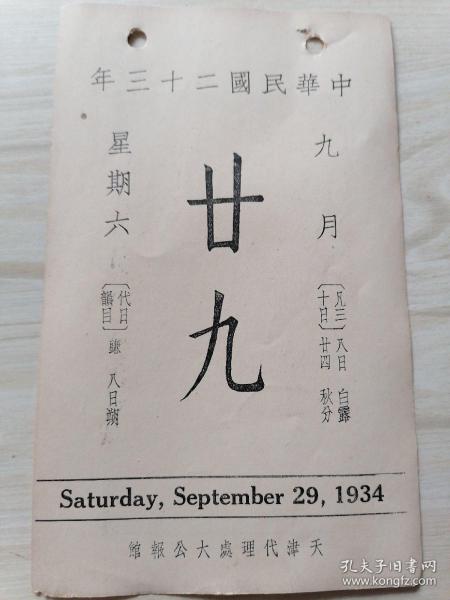 中華民國二十三年
九月
〔凡三十日〕
八日 白露
廿四 秋分
廿九
星期六
〔代日韻目〕
豏 八日朔
Saturday, September 29, 1934
天津代理處大公報館
孔夫子旧书网
www.kongfz.com